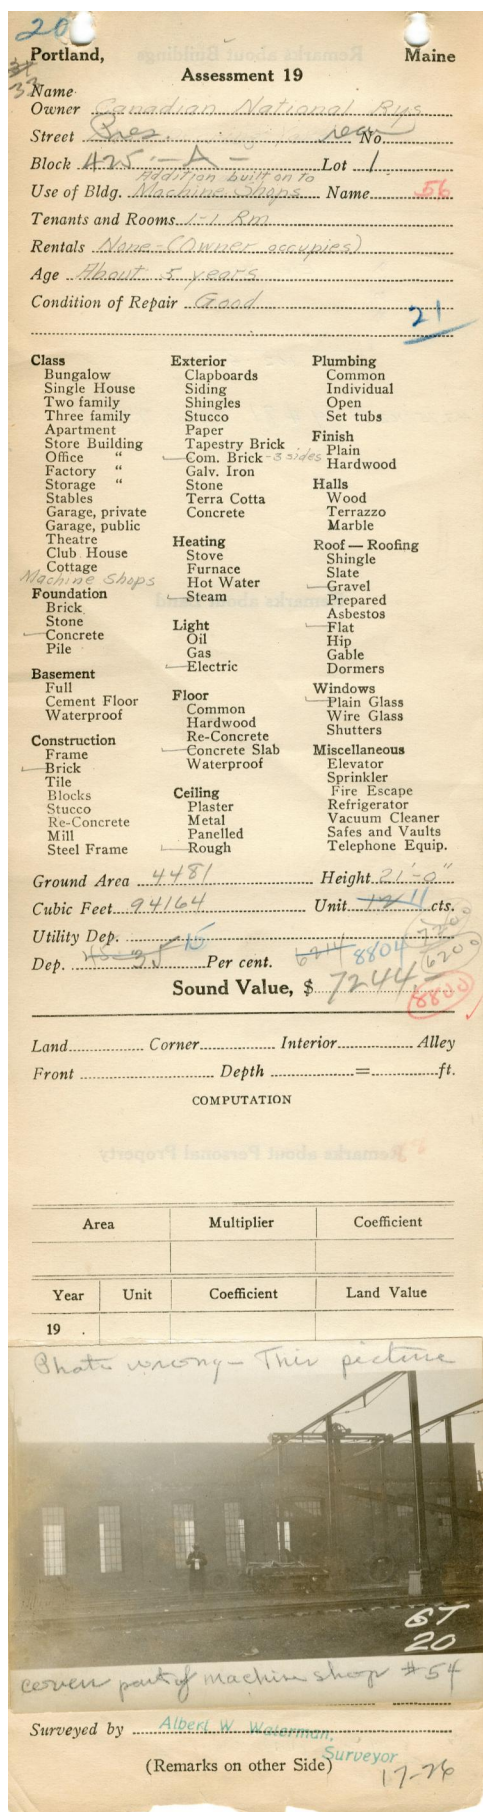 20
Portland, Maine
37
37
Assessment 19
Name
Owner Canadian National Rys
Street Pres. rear No.
Block 425-A- Lot 1
Addition built on to
Use of Bldg. Machine Shops Name 56
Tenants and Rooms 1-1 Rm
Rentals None-(Owner occupies)
Age About 5 years
Condition of Repair Good
21
Class
Bungalow
Single House
Two family
Three family
Apartment
Store Building
Office "
Factory "
Storage "
Stables
Garage, private
Garage, public
Theatre
Club House
Cottage
Machine Shops
Foundation
Brick
Stone
Concrete
Pile
Basement
Full
Cement Floor
Waterproof
Construction
Frame
Brick
Tile
Blocks
Stucco
Re-Concrete
Mill
Steel Frame
Exterior
Clapboards
Siding
Shingles
Stucco
Paper
Tapestry Brick
Com. Brick -3 sides
Galv. Iron
Stone
Terra Cotta
Concrete
Heating
Stove
Furnace
Hot Water
Steam
Light
Oil
Gas
Electric
Floor
Common
Hardwood
Re-Concrete
Concrete Slab
Waterproof
Ceiling
Plaster
Metal
Panelled
Rough
Plumbing
Common
Individual
Open
Set tubs
Finish
Plain
Hardwood
Halls
Wood
Terrazzo
Marble
Roof — Roofing
Shingle
Slate
Gravel
Prepared
Asbestos
Flat
Hip
Gable
Dormers
Windows
Plain Glass
Wire Glass
Shutters
Miscellaneous
Elevator
Sprinkler
Fire Escape
Refrigerator
Vacuum Cleaner
Safes and Vaults
Telephone Equip.
Ground Area 4481 Height 21'-0"
Cubic Feet 94164 Unit 12 11 cts.
Utility Dep. 7200
Dep. 45 35 15 Per cent. 6214 8804 6200
Sound Value, $ 7244 8800
Land Corner Interior Alley
Front Depth = ft.
COMPUTATION
Area Multiplier Coefficient
Year Unit Coefficient Land Value
19 .
Photo wrong - This picture
GT
20
covers part of machine shop #54
Surveyed by Albert W. Waterman,
Surveyor
(Remarks on other Side)
17-26